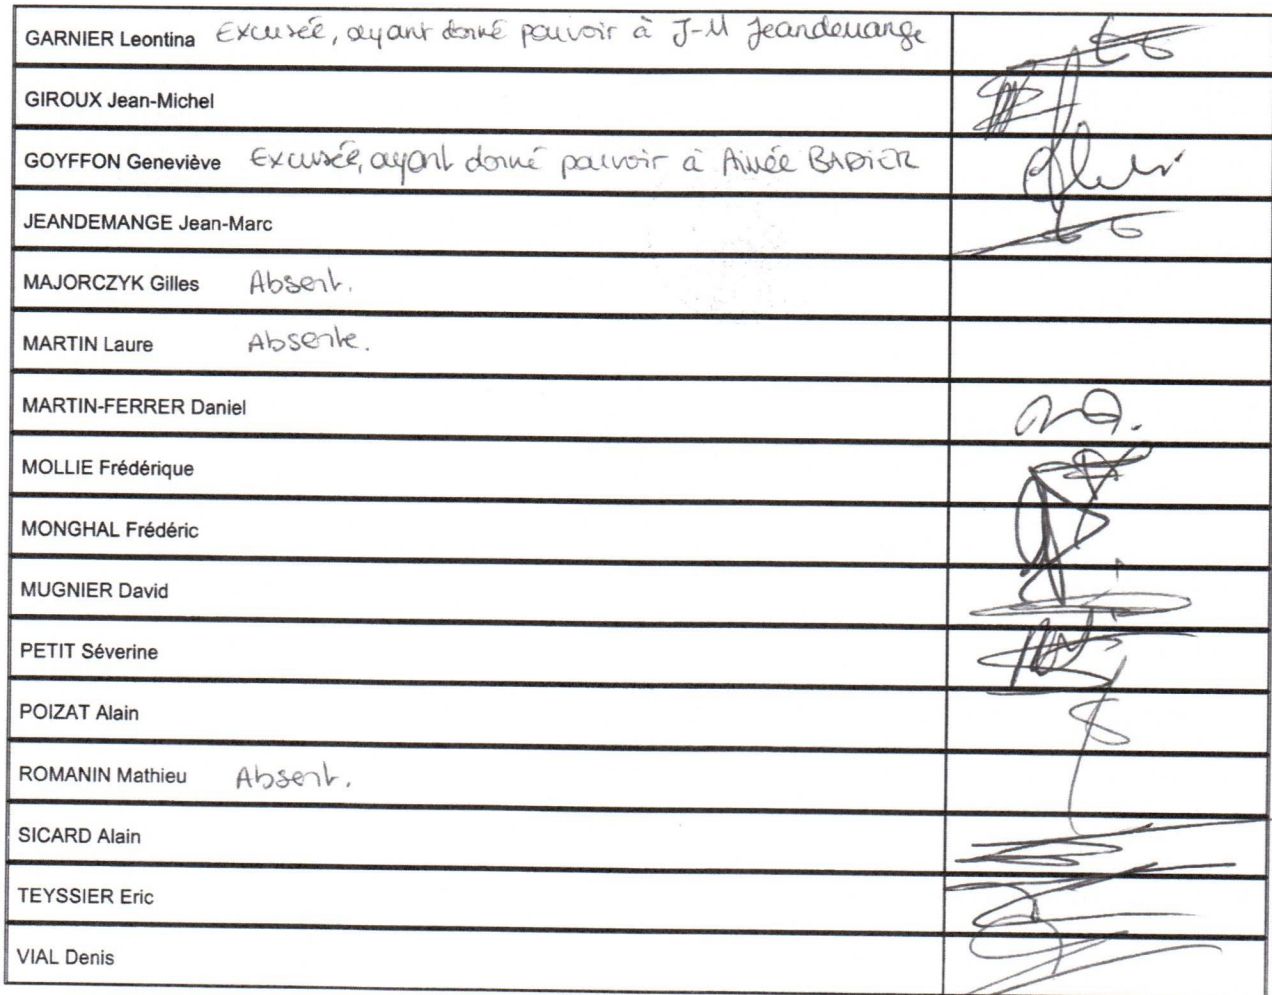 GARNIER Leontina Excusée, ayant donné pouvoir à J-M Jeandemange
GIROUX Jean-Michel
GOYFFON Geneviève Excusée, ayant donné pouvoir à Aimée BADIER
JEANDEMANGE Jean-Marc
MAJORCZYK Gilles Absent.
MARTIN Laure Absente.
MARTIN-FERRER Daniel
MOLLIE Frédérique
MONGHAL Frédéric
MUGNIER David
PETIT Séverine
POIZAT Alain
ROMANIN Mathieu Absent.
SICARD Alain
TEYSSIER Eric
VIAL Denis